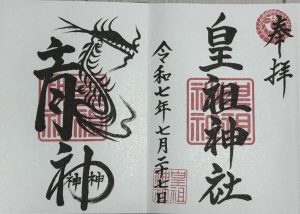 奉拝
皇祖神社
令和七年七月二十七日
龍神
神神